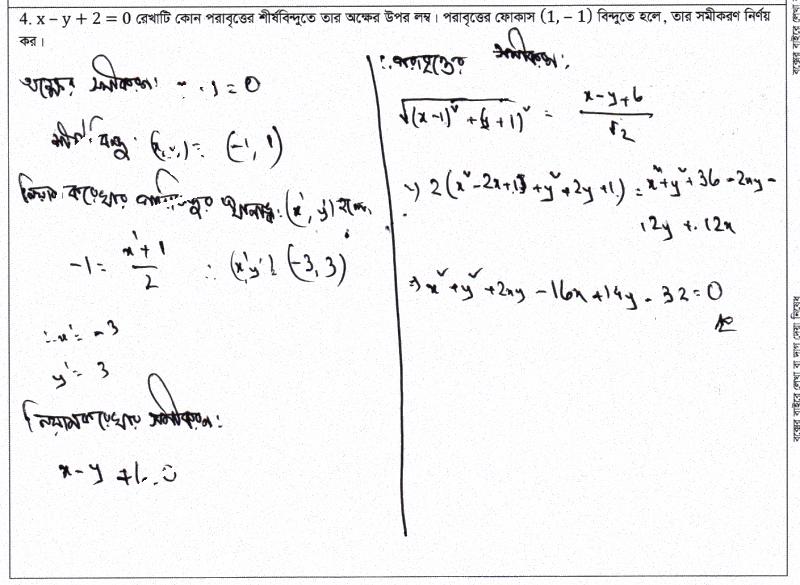 4. x – y + 2 = 0 রেখাটি কোন পরাবৃত্তের শীর্ষবিন্দুতে তার অক্ষের উপর লম্ব। পরাবৃত্তের ফোকাস (1, – 1) বিন্দুতে হলে, তার সমীকরণ নির্ণয়
কর।
অক্ষের সমীকরণ: = 0
শীর্ষবিন্দু: = (-1, 1)
(x', y') হলে,
-1 = \frac{x' + 1}{2} ∴ (x' y') = (-3, 3)
∴ x' = -3
y' = 3
নিয়ামকরেখার সমীকরণ:
x - y +
∴ পরাবৃত্তের সমীকরণ,
√((x-1)² + (y+1)²) = \frac{x-y+6}{√2}
2(x² - 2x + 1 + y² + 2y + 1) = x² + y² + 36 - 2xy -
12y + 12x
⇒ x² + y² + 2xy - 16x + 14y - 32 = 0
বক্সের বাইরে লেখা বা দাগ দেয়া নিষেধ